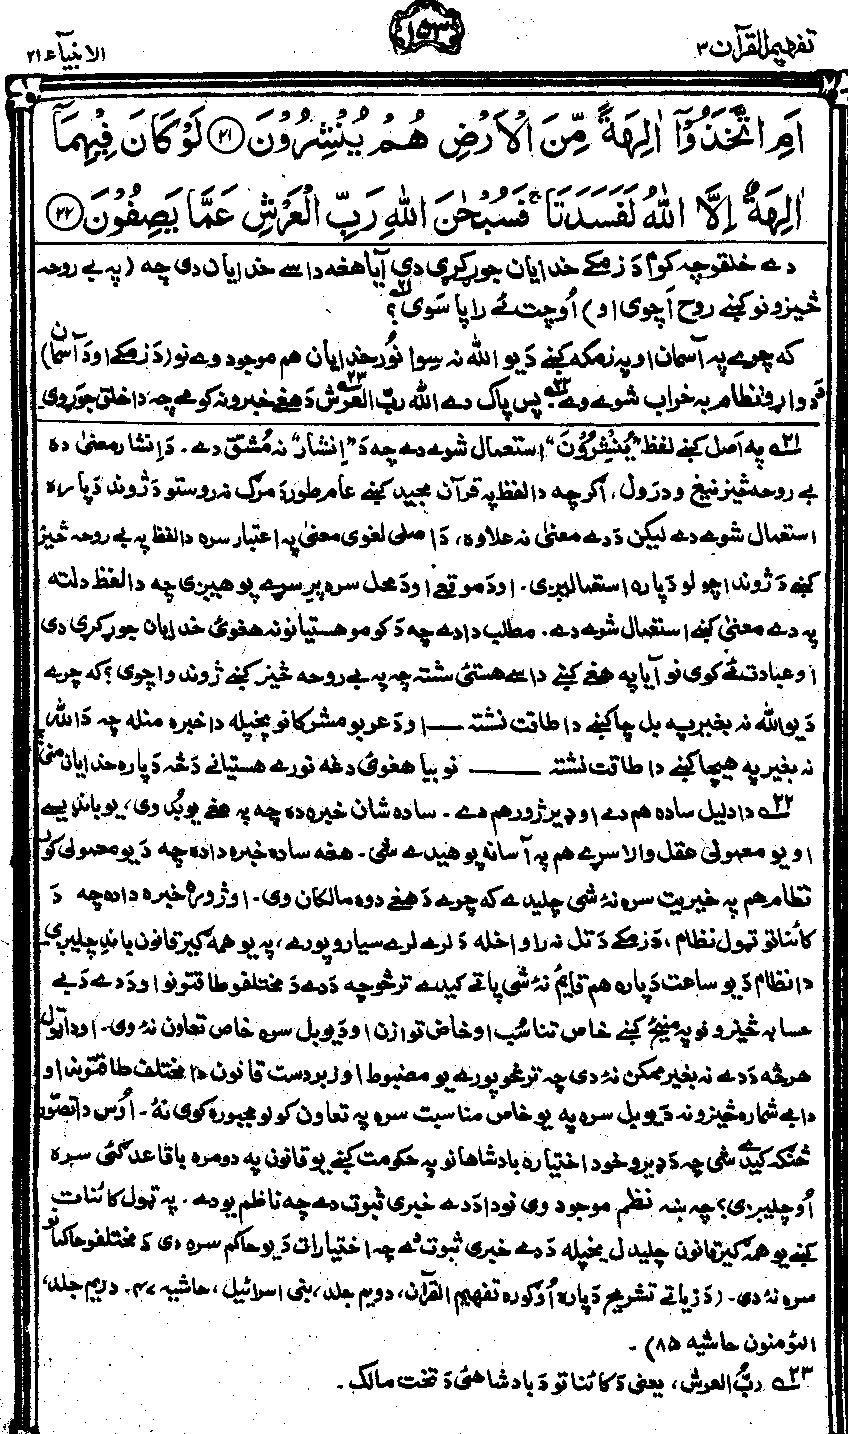 تفهیم القرآن ۳
۱۵۳
الانبیآء ۲۱
اَمِ اتَّخَذُوْۤا اٰلِهَةً مِّنَ الْاَرْضِ هُمْ يُنْشِرُوْنَ ﴿۲۱﴾ لَوْ كَانَ فِيْهِمَاۤ
اٰلِهَةٌ اِلَّا اللّٰهُ لَفَسَدَتَا ۚ فَسُبْحٰنَ اللّٰهِ رَبِّ الْعَرْشِ عَمَّا يَصِفُوْنَ ﴿۲۲﴾
دے خلقو چه کوم دَ زمکے خدایان جوړ کړی دی آیا هغه داسے خدایان دی چه (په بے روحه
څیزونو کښے روح اچوی او) اُوچت ئے راپاسوی؟ ۲۱
که چرے په آسمان او په زمکه کښے دَ یو الله نه سِوا نور خدایان هم موجود وے نو (دَ زمکے او دَ آسمان)
دَ دواړو نظام به خراب شوے وے ۲۲۔ پس پاک دے الله ربّ العرش ۲۳ دَ هغے خبرو نه کومے چه دا خلق جوړوی
۲۱ په اصل کښے لفظ "یُنْشِرُوْنَ" استعمال شوے دے چه دَ "اِنشار" نه مُشتق دے۔ دَ اِنشار معنیٰ ده
بے روحه څیز نیغ ودرول، اگرچه دا لفظ په قرآن مجید کښے عام طور دَ مرګ نه روستو دَ ژوند دَ پاره
استعمال شوے دے لیکن دَ دے معنیٰ نه علاوه، دَ اصلی لغوی معنیٰ په اعتبار سره دا لفظ په بے روحه څیز
کښے دَ ژوند اچولو دَ پاره استعمالیږی۔ او دَ موقعے او دَ محل سره برسیرے پوهیږی چه دا لفظ دلته
په دے معنیٰ کښے استعمال شوے دے۔ مطلب دا دے چه دَ کومو هستیانو نه هغوی خدایان جوړ کړی دی
او عبادت ئے کوی نو آیا په هغے کښے داسے هستی شته چه په بے روحه څیز کښے ژوند واچوی؟ که چرے
دَ یو الله نه بغیر په بل چا کښے دا طاقت نشته —— او دَ عربو مشرکانو پخپله دا خبره منله چه دَ الله
نه بغیر په هیچا کښے دا طاقت نشته —— نو بیا هغوی دغه نورے هستیانے دَ څه دَ پاره خدایان منی
۲۲ دا دلیل ساده هم دے او ډیر ژور هم دے۔ ساده شان خبره ده چه په هغے یو بُدوی، یو باندیسے
او یو معمولی عقل والا سړے هم په آسانه پوهیدے شی۔ هغه ساده خبره دا ده چه دَ یو معمولی کور
نظام هم په خیریت سره نهٔ شی چلیدے که چرے دَ هغے دوه مالکان وی۔ او ژوره خبره دا ده چه دَ
کائناتو ټول نظام، دَ زمکے دَ تل نه راواخله دَ لرے لرے سیارو پورے، په یو همه ګیر قانون باندے چلیږی
دا نظام دَ یو ساعت دَ پاره هم قایم نهٔ شی پاتے کیدے ترڅو چه دَ دے دَ مختلفو طاقتونو او دَ دے دَ بے
حسابه څیزونو په مینځ کښے خاص تناسُب او خاص توازن او دَ یو بل سره خاص تعاون نهٔ وی۔ او دا ټول
هر څه دَ دے نه بغیر ممکن نهٔ دی چه ترڅو پورے یو مضبوط او زبردست قانون دا مختلف طاقتونه او
دا بے شماره څیزونه دَ یو بل سره په یو خاص مناسبت سره په تعاون کولو مجبوره کوی نهٔ۔ اُوس دا تصوّر
څنګه کیدے شی چه دَ ډیرو خود اختیاره بادشاهانو په حکومت کښے یو قانون په دومره باقاعدګئی سره
اُوچلیږی؟ چه ښه نظم موجود وی نو دا دَ دے خبری ثبوت دے چه ناظم یو دے۔ په ټول کائنات
کښے یو همه ګیر قانون چلیدل پخپله دَ دے خبری ثبوت دے چه اختیارات دَ یو حاکم سره دی دَ مختلفو حاکمانو
سره نهٔ دی۔ (دَ زیاتے تشریح دَ پاره اُوګوره تفهیم القرآن، دویم جلد، بنی اسرائیل، حاشیه ۴۷۔ دریم جلد،
المؤمنون حاشیه ۸۵)۔
۲۳ ربُّ العرش، یعنی دَ کائناتو دَ بادشاهئ دَ تخت مالک۔